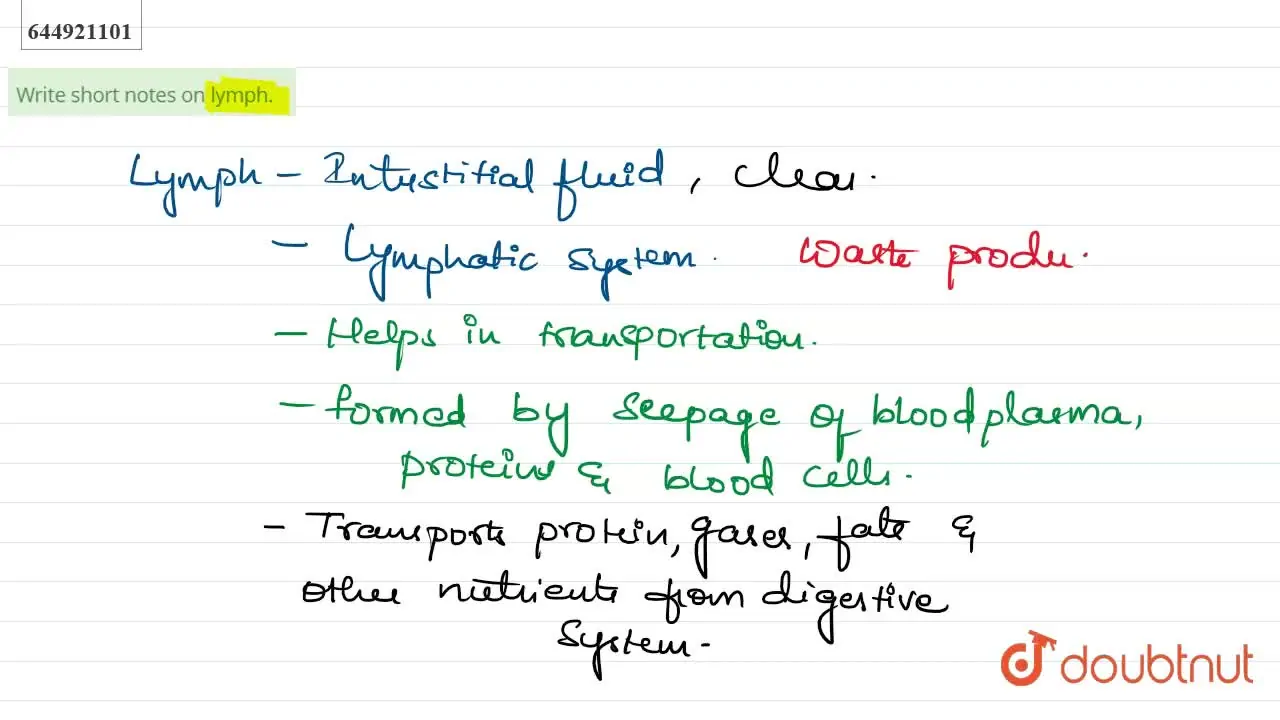 644921101
Write short notes on lymph.
Lymph - Interstitial fluid, clear.
- Lymphatic system. Waste produ.
- Helps in transportation.
- formed by seepage of blood plasma,
proteins & blood cells.
- Transports protein, gases, fats &
other nutrients from digestive
system.
doubtnut